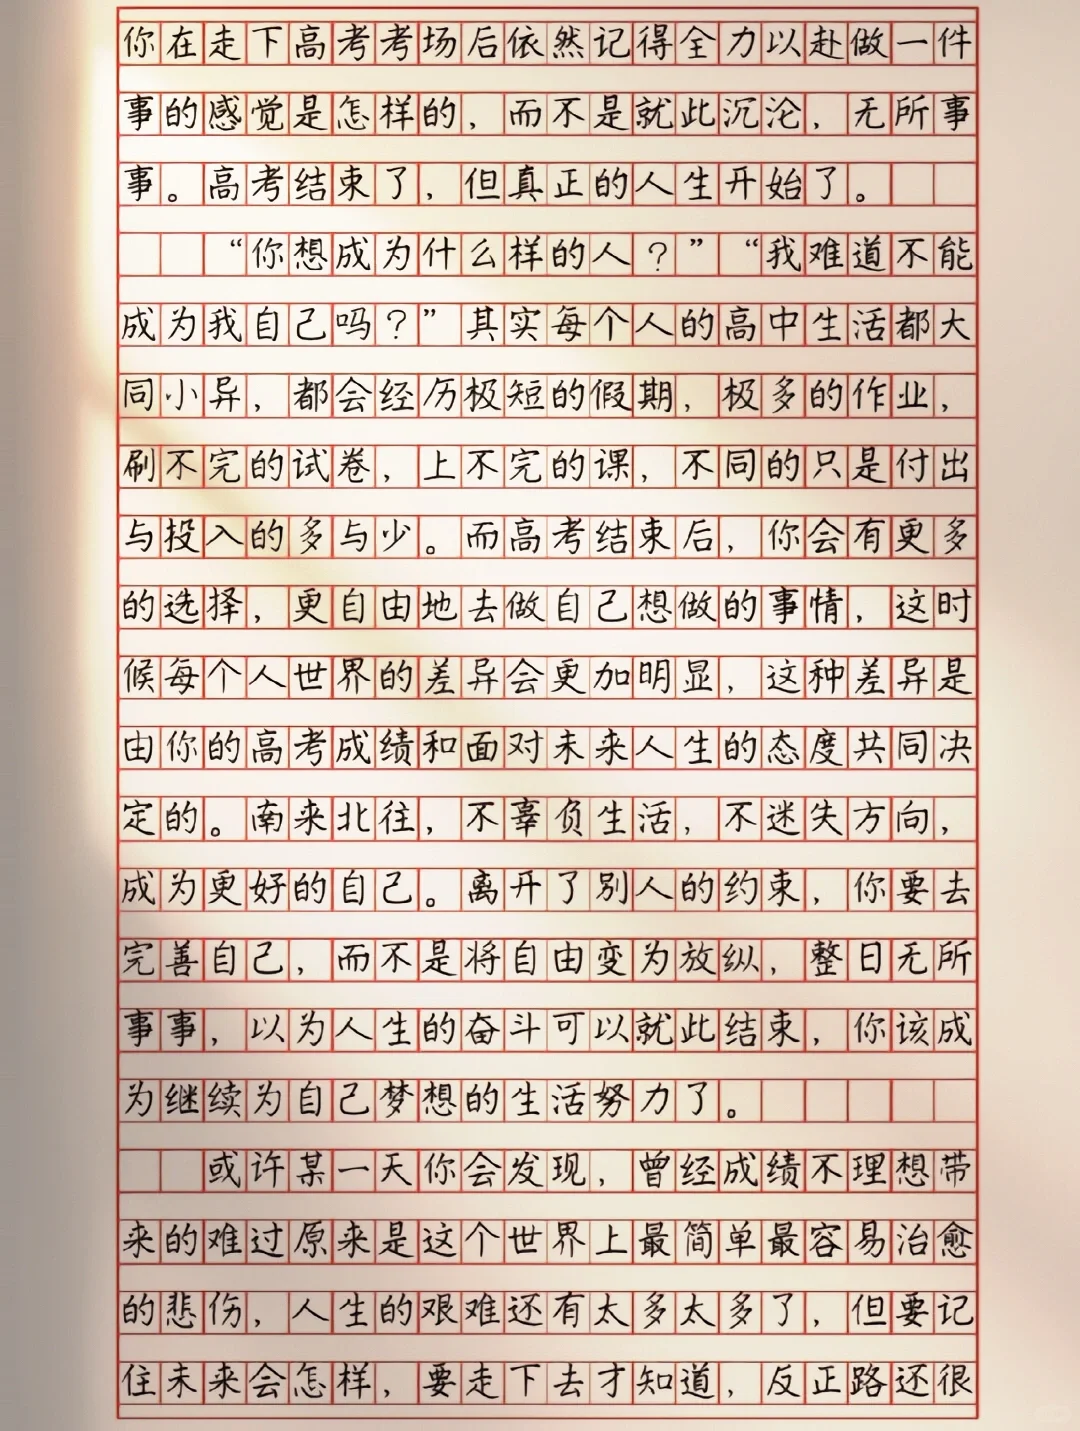 你在走下高考考场后依然记得全力以赴做一件
事的感觉是怎样的，而不是就此沉沦，无所事
事。高考结束了，但真正的人生开始了。
“你想成为什么样的人？”“我难道不能
成为我自己吗？”其实每个人的高中生活都大
同小异，都会经历极短的假期，极多的作业，
刷不完的试卷，上不完的课，不同的只是付出
与投入的多与少。而高考结束后，你会有更多
的选择，更自由地去做自己想做的事情，这时
候每个人世界的差异会更加明显，这种差异是
由你的高考成绩和面对未来人生的态度共同决
定的。南来北往，不辜负生活，不迷失方向，
成为更好的自己。离开了别人的约束，你要去
完善自己，而不是将自由变为放纵，整日无所
事事，以为人生的奋斗可以就此结束，你该成
为继续为自己梦想的生活努力了。
或许某一天你会发现，曾经成绩不理想带
来的难过原来是这个世界上最简单最容易治愈
的悲伤，人生的艰难还有太多太多了，但要记
住未来会怎样，要走下去才知道，反正路还很